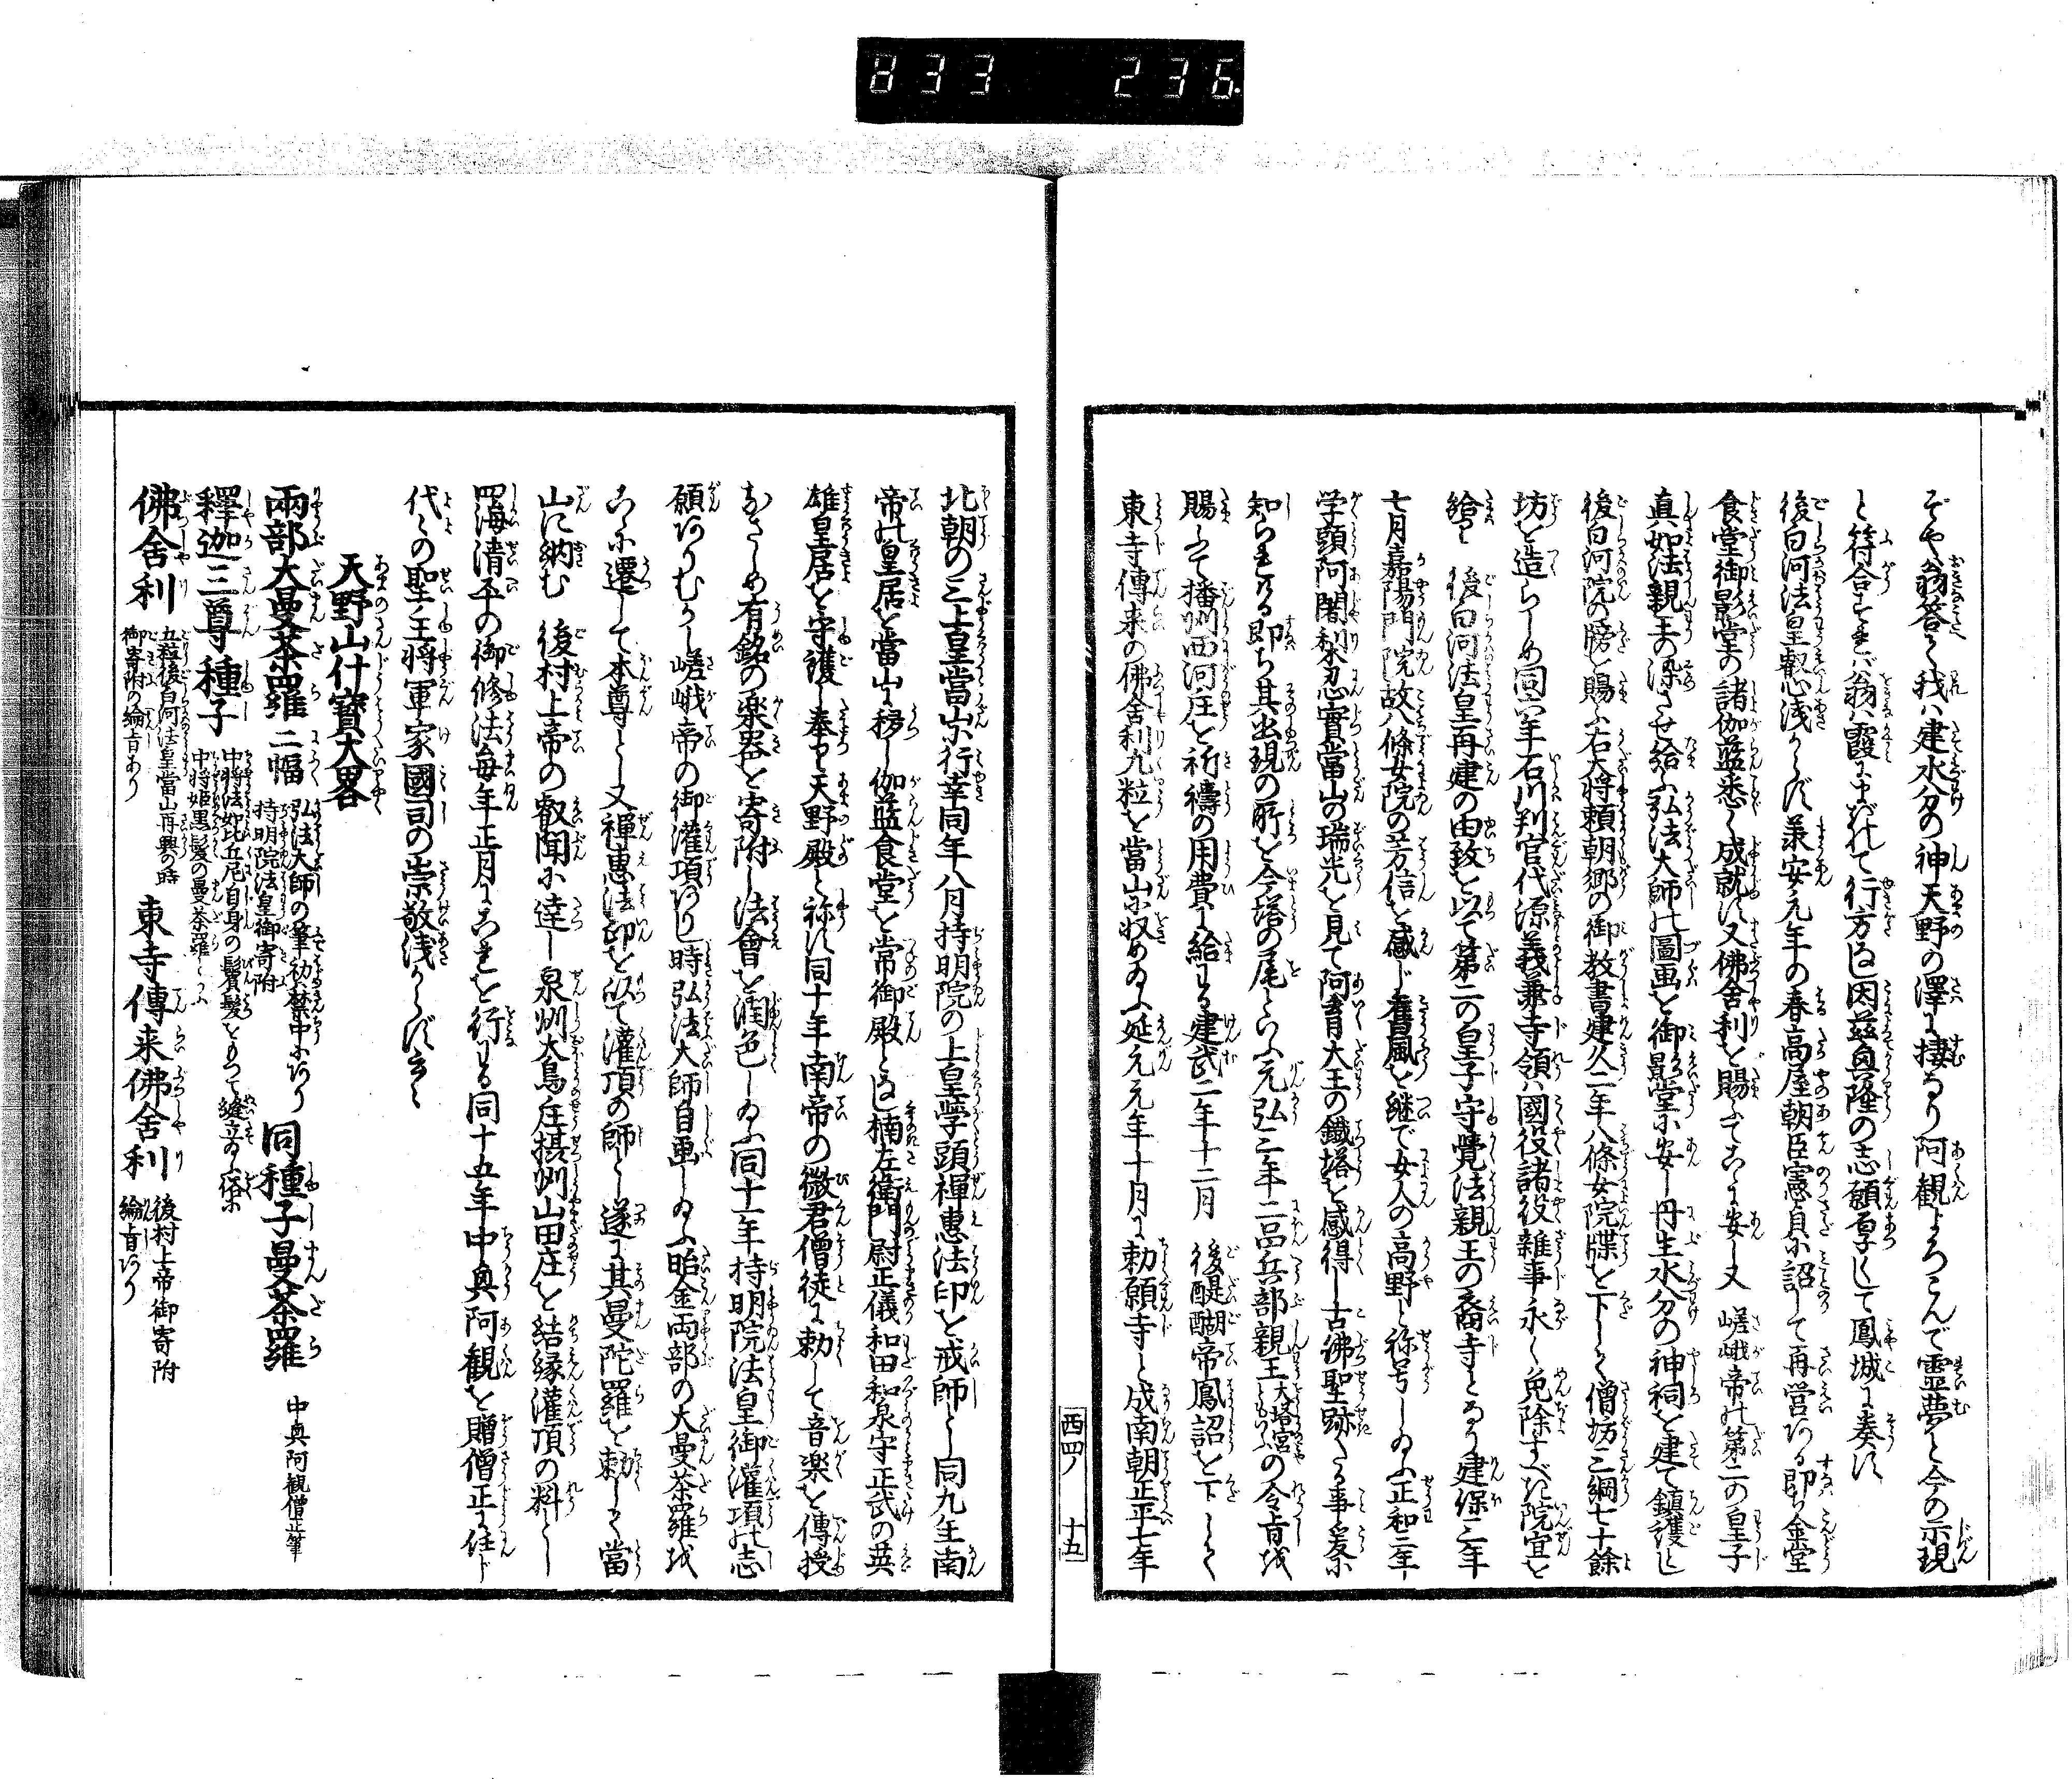 833 236
ぞや翁答て我は建水分の神天野の澤に捿なり阿観よろこんで霊夢と今の示現
と符合すれば翁は霞にまぎれて行方なし因茲興隆の志願厚くして鳳城に奏す
後白河法皇叡心浅からず兼安元年の春高屋朝臣憲貞に詔して再営ある即ち金堂
食堂御影堂の諸伽藍悉く成就す又佛舍利を賜ふてこゝに安し又 嵯峨帝の第二の皇子
真如法親王の染させ給ふ弘法大師の圖画を御影堂に安し丹生水分の神祠を建て鎮護とし
後白河院の牓を賜ふ右大将頼朝郷の御教書建久二年八條女院牒を下して僧坊三綱七十餘
坊を造らしめ同六年石川判官代源義兼寺領は國役諸役雑事永く免除すべき院宣を
給ふ 後白河法皇再建の由致を以て第二の皇子守覺法親王の裔寺となる建保三年
七月嘉陽門院故八條女院の芳信を感じ舊風を継で女人の高野と称号し給ふ正和三年
学頭阿闍梨忍實當山の瑞光を見て阿育大王の鐵塔を感得し古佛聖跡たる事爰に
知られたる即ち其出現の所を今塔の尾といふ元弘三年二品兵部親王大塔宮ともいふの令旨を
賜ふて播州西河庄を祈禱の用費に給はる建武二年十二月 後醍醐帝鳳詔を下して
東寺傳来の佛舍利九粒を當山に収め給ふ延元元年十月に勅願寺と成南朝正平七年
西四ノ 十五
北朝の三上皇當山に行幸同年八月持明院の上皇學頭禅惠法印を戒師とし同九年南
帝の皇居を當山に移し伽藍食堂を常御殿とし楠左衛門尉正儀和田和泉守正武の英
雄皇居を守護し奉り天野殿と称す同十年南帝の微君僧徒に勅して音楽を傳授
なさしめ有銘の楽器を寄附し法會を潤色し給ふ同十一年持明院法皇御灌頂の志
願ありむかし嵯峨帝の御灌頂ありし時弘法大師自画し給ふ胎金両部の大曼荼羅を
こゝに遷して本尊とし又禅惠法印を以て灌頂の師とし遂に其曼陀羅を勅して當
山に納む 後村上帝の叡聞に達し泉州大鳥庄摂州山田庄を結縁灌頂の料とし
四海清平の御修法毎年正月にこれを行はる同十五年中興阿観を贈僧正に任ず
代々の聖王将軍家國司の崇敬浅からずと云々
天野山什寳大畧
兩部大曼荼羅二幅 弘法大師の筆初は禁中にあり 持明院法皇御寄附 同種子曼荼羅 中興阿観僧正筆
釋迦三尊種子 中将法如比丘尼自身の鬢髪をもつて縫之給ふ俗に 中将姫黒髪の曼荼羅といふ
佛舍利 五粒後白河法皇當山再興の時 御寄附の綸旨あり 東寺傳来佛舍利 後村上帝御寄附 綸旨あり